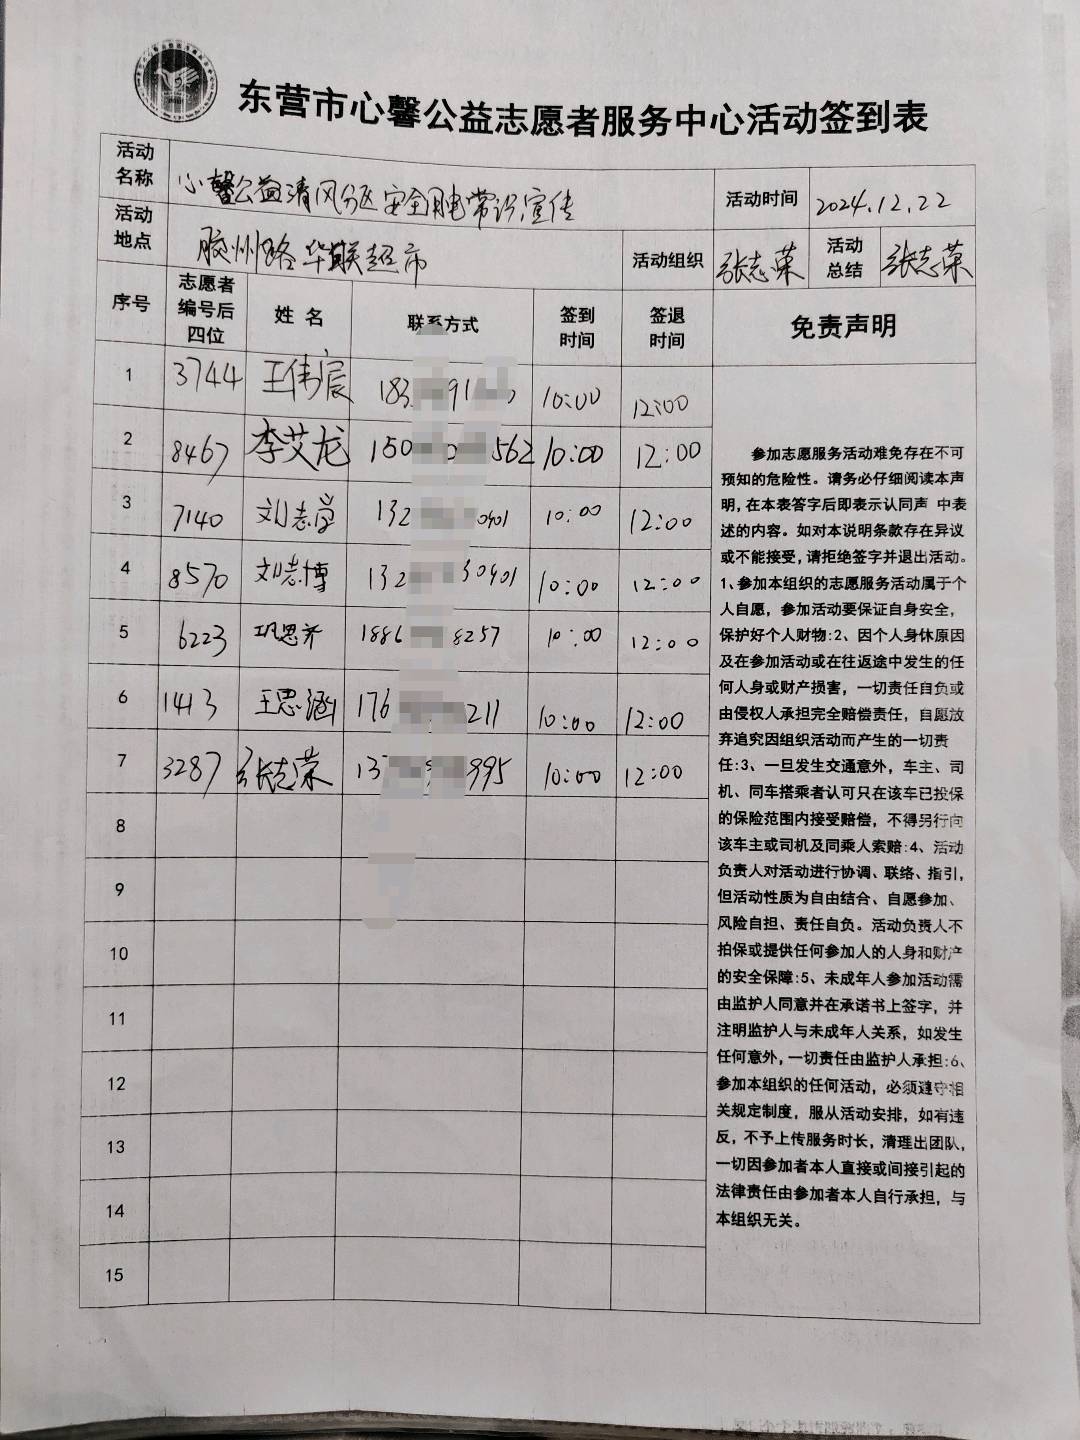 东营市心馨公益志愿者服务中心活动签到表
活动名称 心馨公益清风分区安全用电常识宣传 活动时间 2024.12.22
活动地点 胶州路华联超市 活动组织 张志荣 活动总结 张志荣
序号 志愿者编号后四位 姓名 联系方式 签到时间 签退时间 免责声明
1 3744 王伟宸 183 91 10:00 12:00
2 8467 李艾龙 150 562 10:00 12:00
3 7140 刘志学 132 0401 10:00 12:00
4 8570 刘志博 132 30401 10:00 12:00
5 6223 巩思齐 1886 8257 10:00 12:00
6 1413 王思涵 176 211 10:00 12:00
7 3287 张志荣 13 995 10:00 12:00
8
9
10
11
12
13
14
15
参加志愿服务活动难免存在不可
预知的危险性。请务必仔细阅读本声
明,在本表答字后即表示认同声 中表
述的内容。如对本说明条款存在异议
或不能接受,请拒绝签字并退出活动。
1、参加本组织的志愿服务活动属于个
人自愿,参加活动要保证自身安全,
保护好个人财物:2、因个人身休原因
及在参加活动或在往返途中发生的任
何人身或财产损害,一切责任自负或
由侵权人承担完全赔偿责任,自愿放
弃追究因组织活动而产生的一切责
任:3、一旦发生交通意外,车主、司
机、同车搭乘者认可只在该车已投保
的保险范围内接受赔偿,不得另行向
该车主或司机及同乘人索赔:4、活动
负责人对活动进行协调、联络、指引,
但活动性质为自由结合、自愿参加、
风险自担、责任自负。活动负责人不
拍保或提供任何参加人的人身和财产
的安全保障:5、未成年人参加活动需
由监护人同意并在承诺书上签字,并
注明监护人与未成年人关系,如发生
任何意外,一切责任由监护人承担:6、
参加本组织的任何活动,必须遵守相
关规定制度,服从活动安排,如有违
反,不予上传服务时长,清理出团队,
一切因参加者本人直接或间接引起的
法律责任由参加者本人自行承担,与
本组织无关。